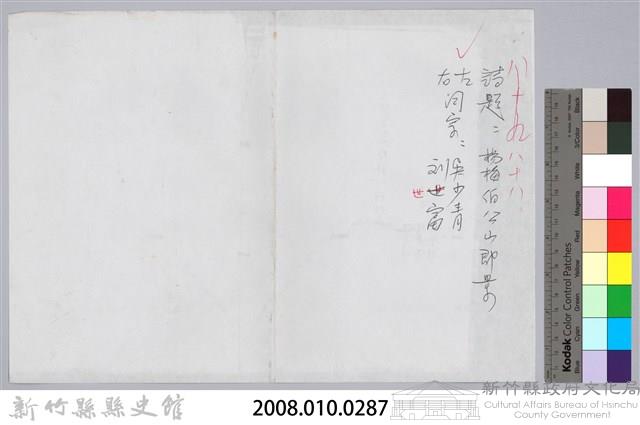 八十九 八十八
詩題：楊梅伯公山即景
左詞宗：吳少青
右 劉世富
世
Black
3/Color
White
Magenta
Red
Yellow
Green
Cyan
Blue
Kodak Color Control Patches
新竹縣縣史館
2008.010.0287
新竹縣政府文化局
Cultural Affairs Bureau of Hsinchu
County Government